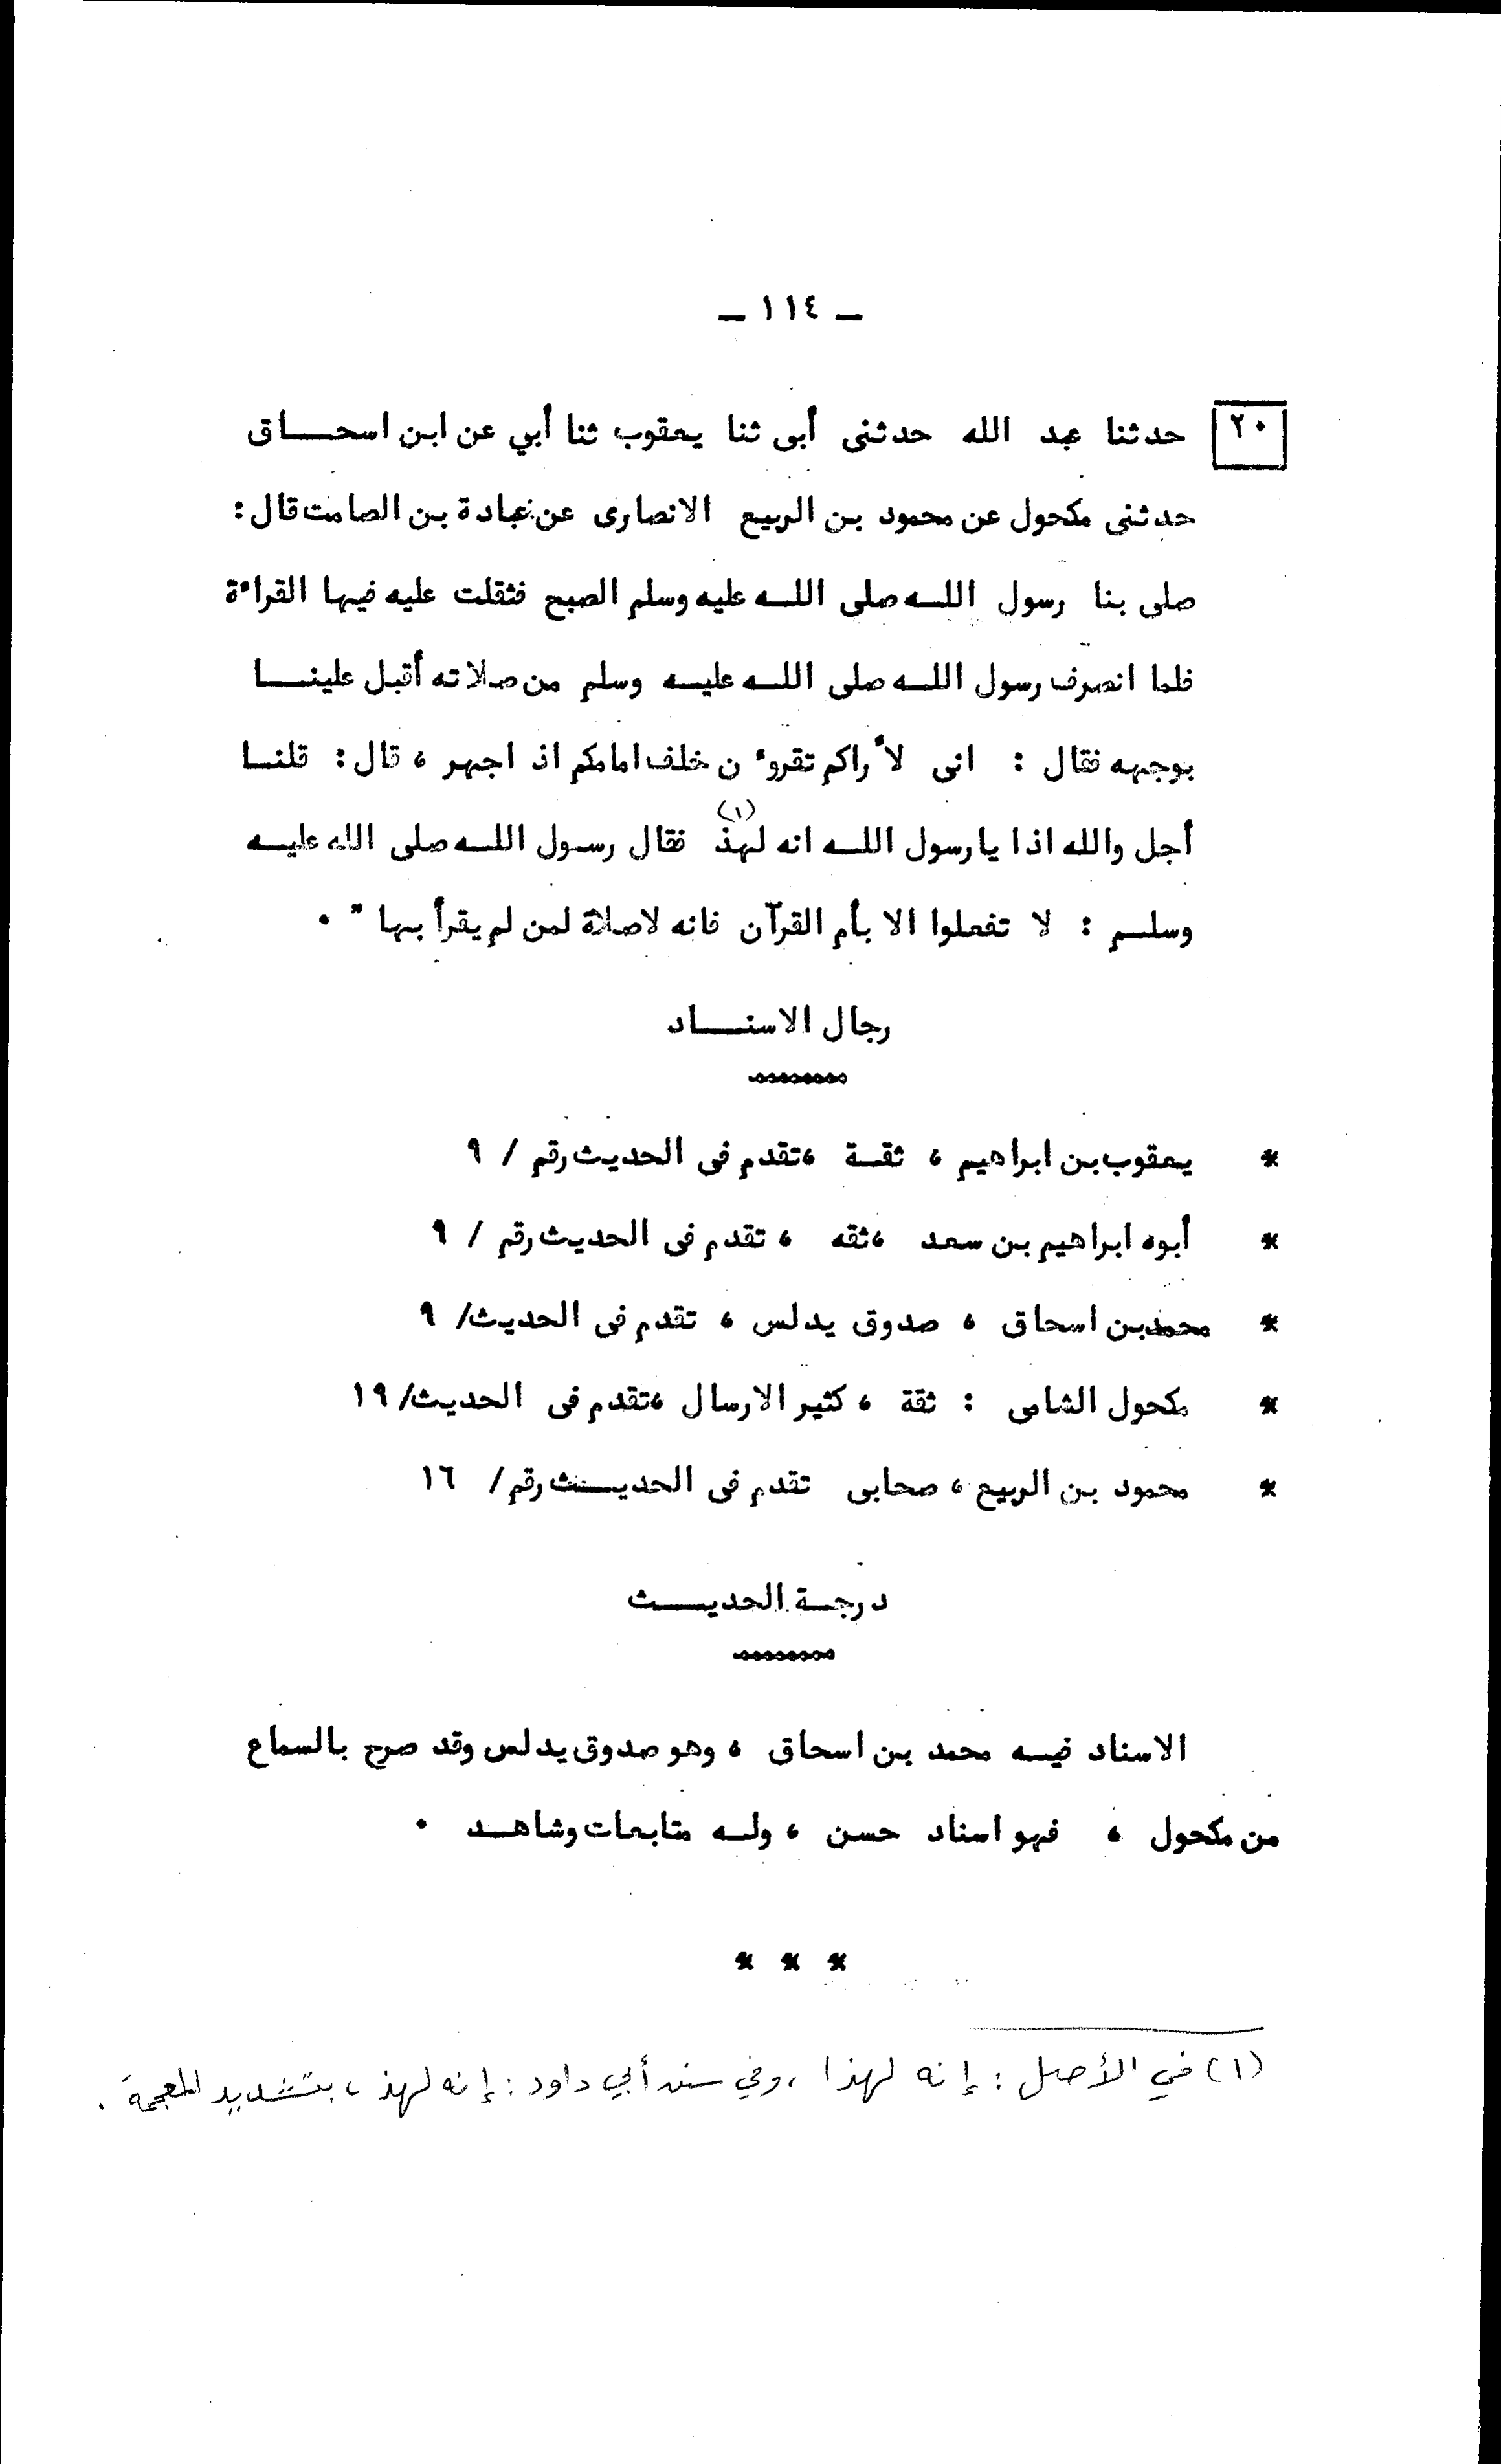 ـ ١١٤ ـ
٢٠ حدثنا عبد الله حدثنى أبى ثنا يعقوب ثنا أبي عن ابن اسحـــاق
حدثنى مكحول عن محمود بن الربيع الانصارى عن عبادة بن الصامت قال :
صلى بنا رسول اللــه صلى اللــه عليه وسلم الصبح فثقلت عليه فيها القراءة
فلما انصرف رسول اللــه صلى اللــه عليــه وسلم من صلاته أقبل علينـــا
بوجهه فقال : انى لأراكم تقروءن خلف امامكم اذ اجهر ، قال : قلنــا
أجل والله اذا يا رسول اللــه انه لهذ (١) فقال رسول اللــه صلى الله عليــه
وسلــم : لا تفعلوا الا بأم القرآن فانه لاصلاة لمن لم يقرأ بها " .
رجال الاسنـــاد
* يعقوب بن ابراهيم ، ثقــة ، تقدم فى الحديث رقم / ٩
* أبوه ابراهيم بن سعد ، ثقه ، تقدم فى الحديث رقم / ٩
* محمد بن اسحاق ، صدوق يدلس ، تقدم فى الحديث / ٩
* مكحول الشامى : ثقة ، كثير الارسال ، تقدم فى الحديث / ١٩
* محمود بن الربيع ، صحابى تقدم فى الحديــث رقم / ١٦
درجــة الحديـــث
الاسناد فيــه محمد بن اسحاق ، وهو صدوق يدلس وقد صرح بالسماع
من مكحول ، فهو اسناد حسن ، ولــه متابعات وشاهــد .
* * *
(١) في الأصل : إنه لهذا ، وفي سنن أبي داود : إنه لهذ ، بتشديد المعجمة .